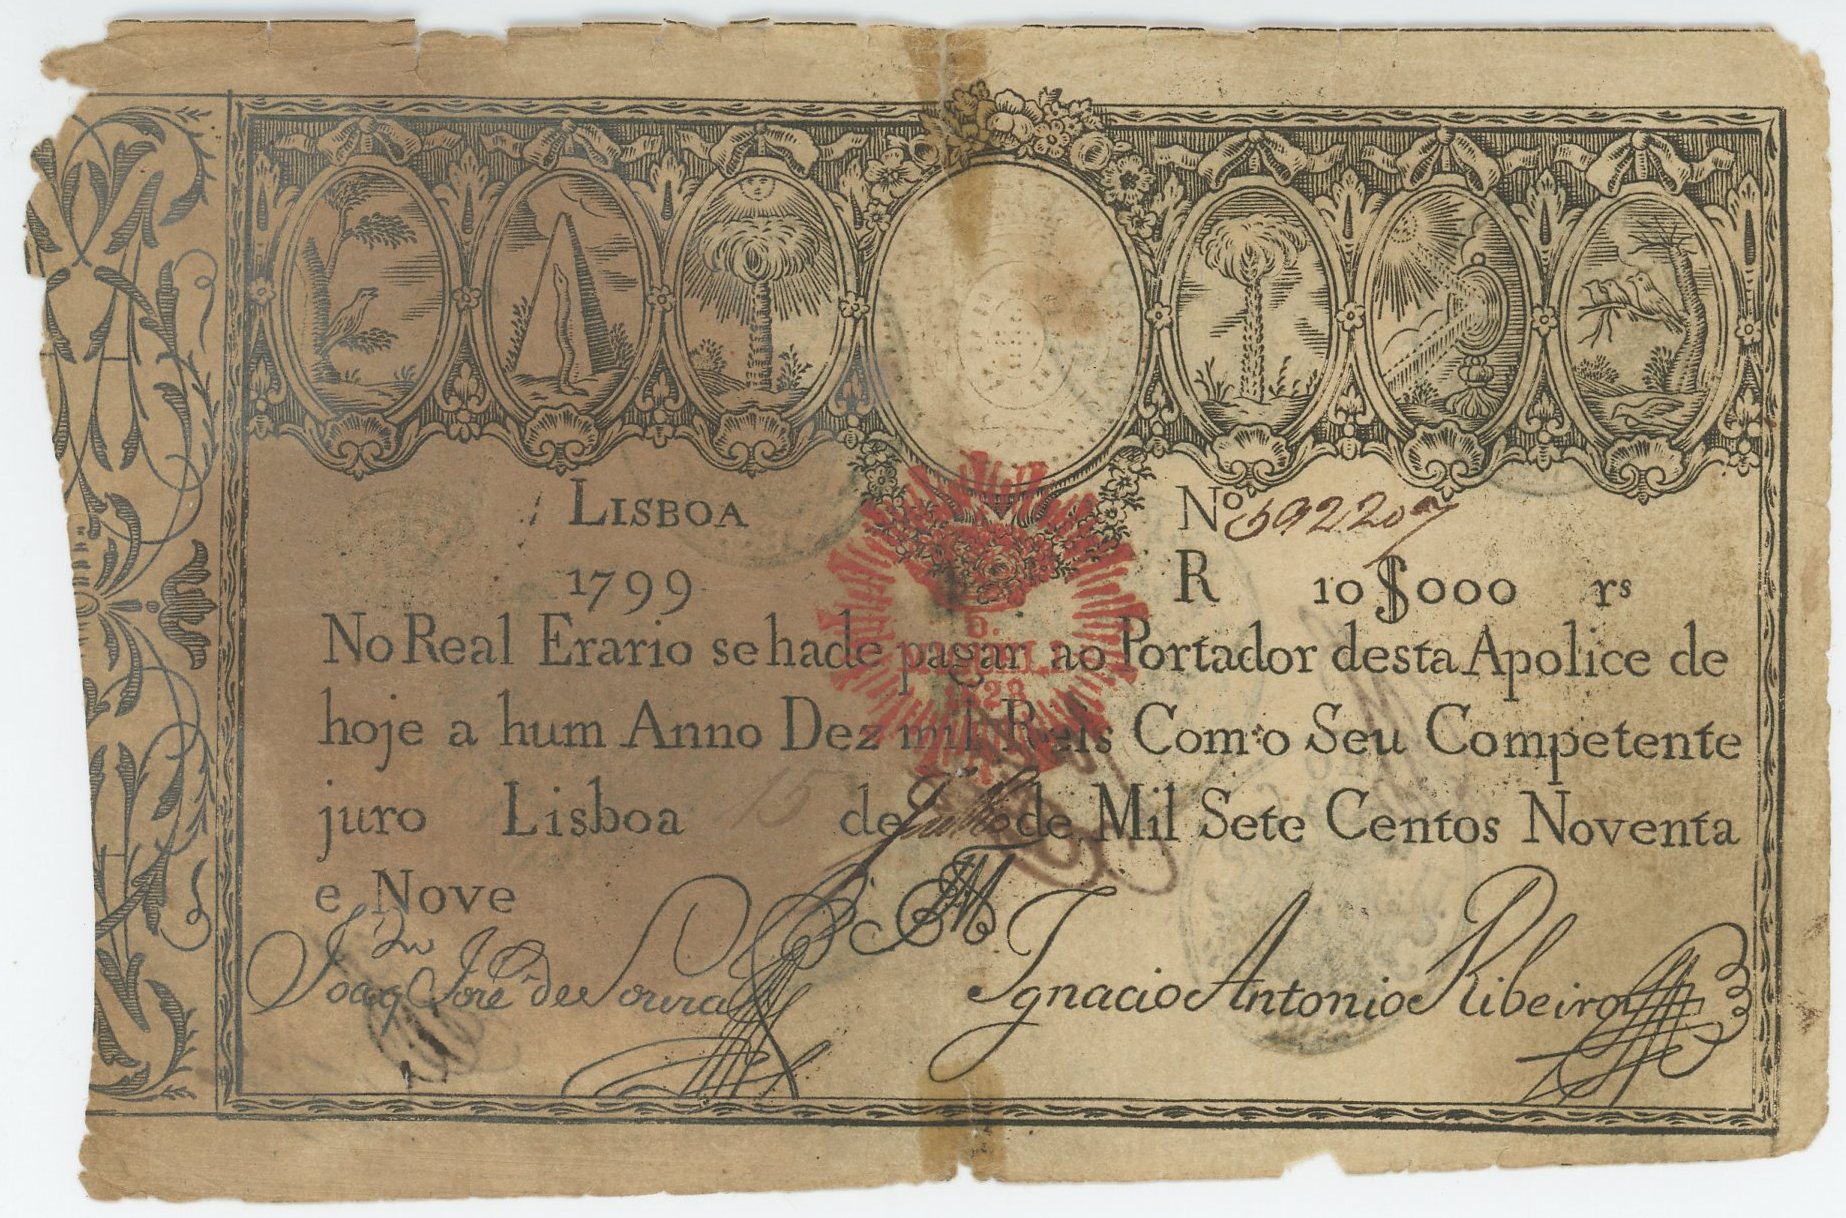 LISBOA
Nº 592207
1799
R 10$000 rs
No Real Erario se hade pagar ao Portador desta Apolice de
hoje a hum Anno Dez mil Reis Com o Seu Competente
juro Lisboa 15 de Julho de Mil Sete Centos Noventa
e Nove
Joaq Jose de Souza
Ignacio Antonio Ribeiro